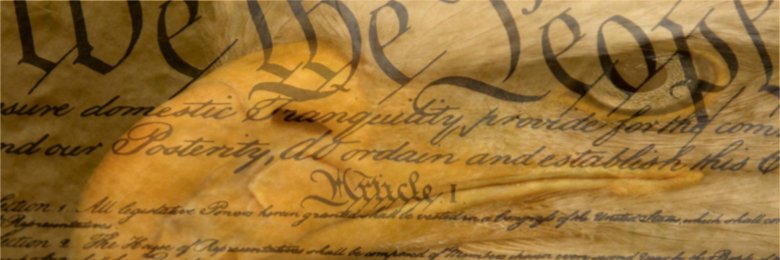 We the Peopl
sure domestic Tranquility, provide for the com
nd our Posterity, do ordain and establish this C
Article I
Section 1. All legislative Powers herein granted shall be vested in a Congress of the United States, which shall con
Representatives.
Section 2. The House of Representatives shall be composed of Members chosen every second Year by the People